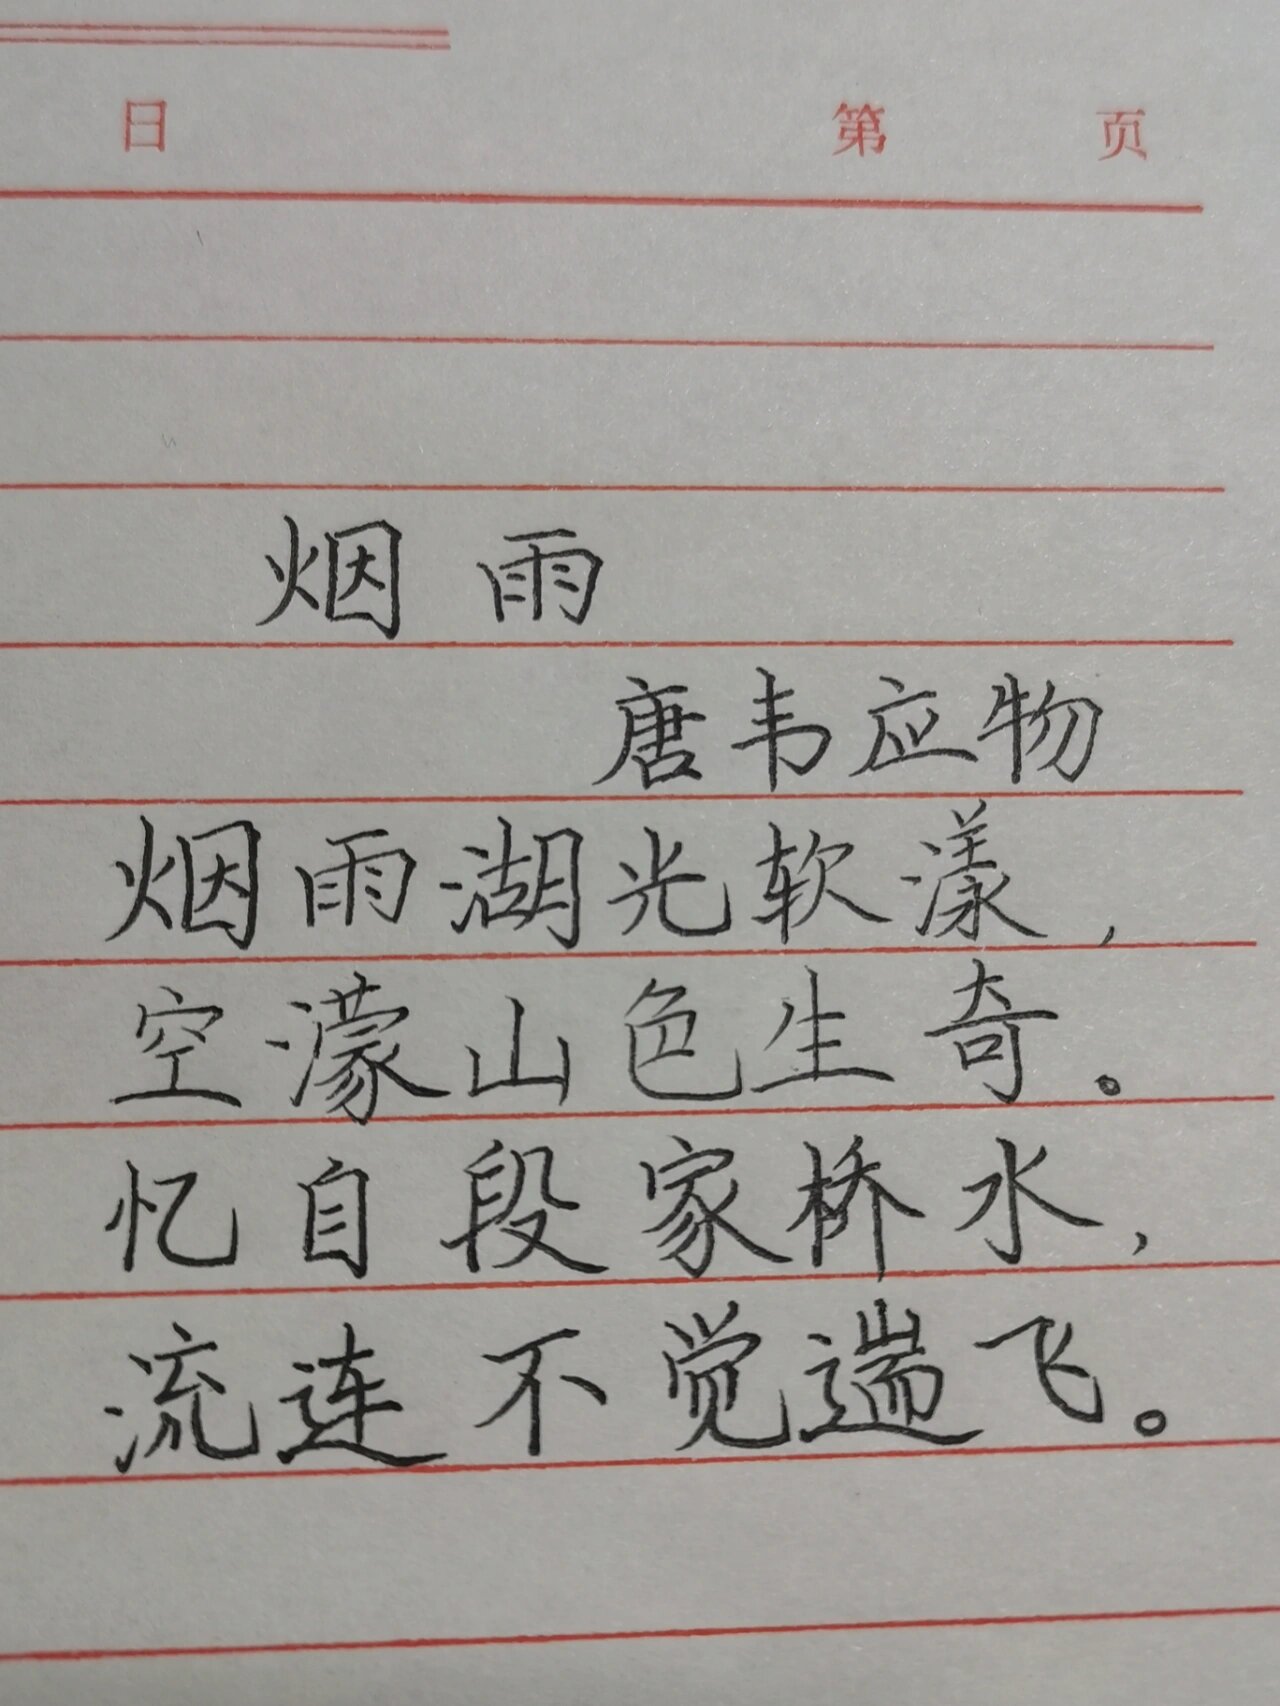 日 第 页
烟雨
唐韦应物
烟雨湖光软漾，
空濛山色生奇。
忆自段家桥水，
流连不觉遄飞。